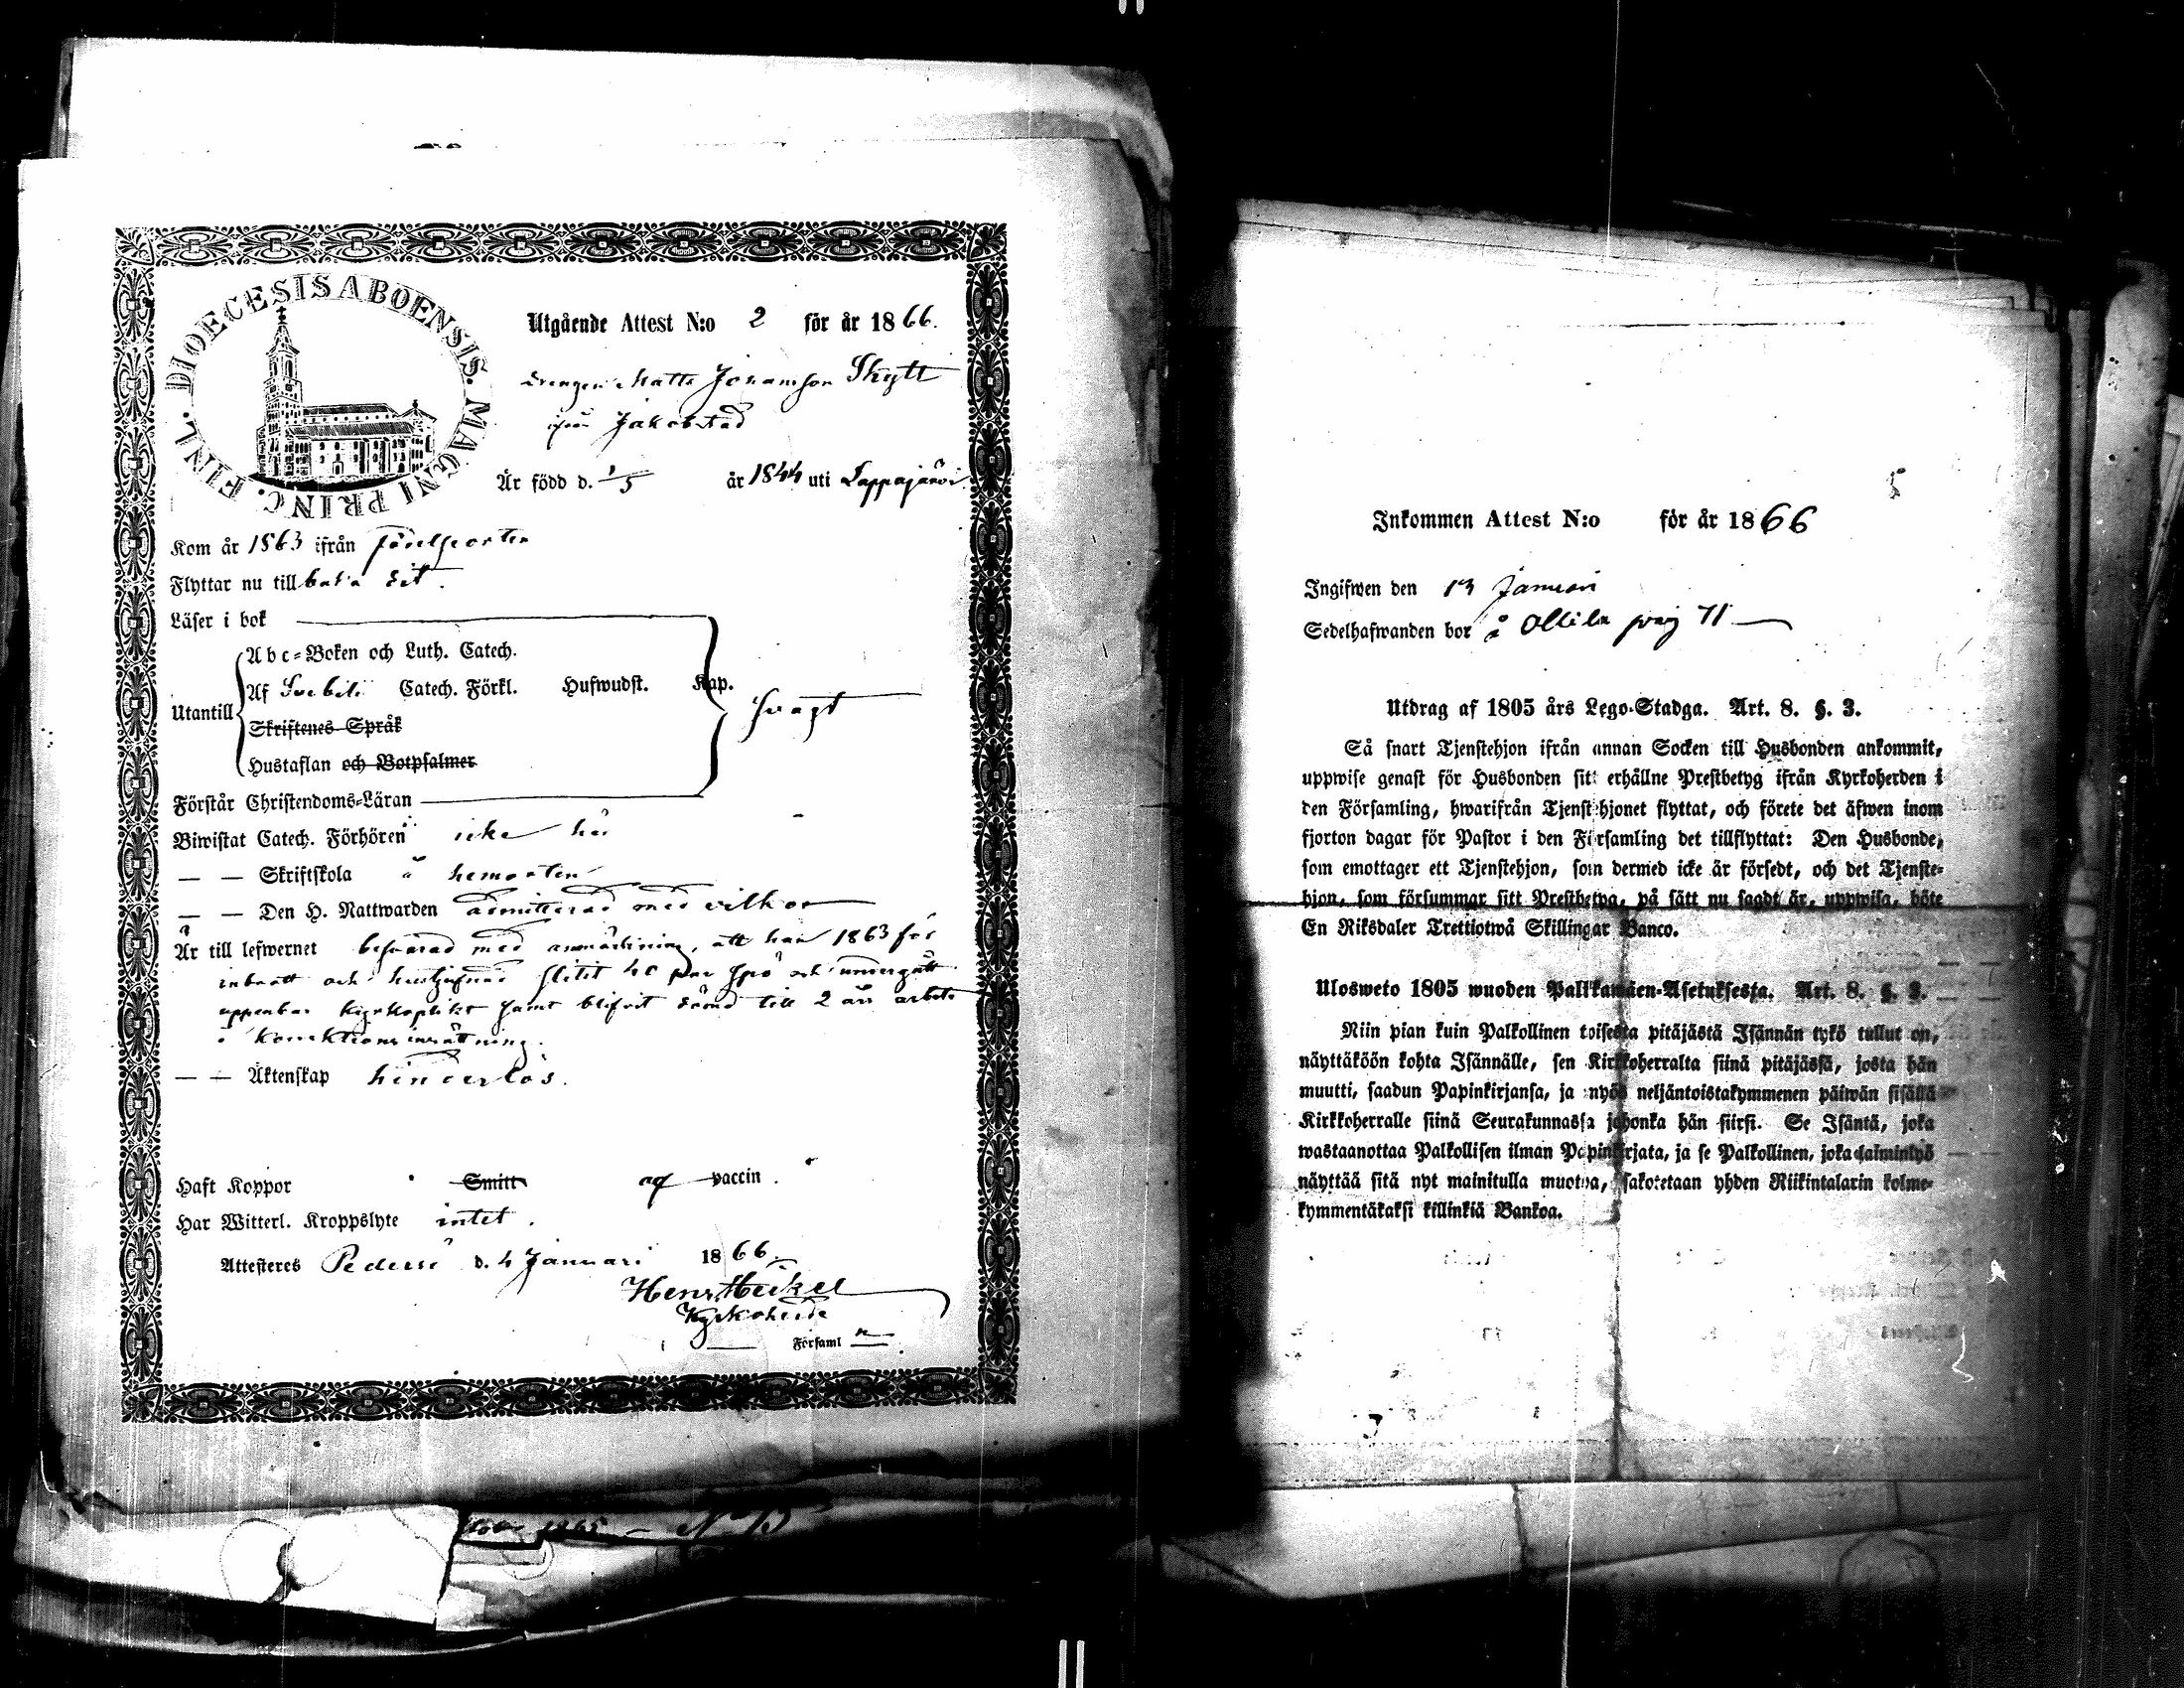 DIOECESIS ABOENSIS. MAGNI PRINC. FINL.
Utgående Attest N:o 2 för år 1866.
Drengen Matts Johansson Skytt
ifrån Jakobstad
Är född d. 1/5 år 1844 uti Lappajärvi
Kom år 1863 ifrån födelseorten
Flyttar nu till baka dit.
Läser i bok
Utantill
Abc-Boken och Luth. Catech.
Af Svebili Catech. Förkl. Hufwudst. Kap.
Skriftenes Språk
Hustaflan och Botpsalmer
svagt
Förstår Christendoms-Läran
Biwistat Catech. Förhören icke här
— — Skriftskola å hemorten
— — Den H. Nattwarden admitterad med vilkor
Är till lefwernet befvarad med anmärkning, att han 1863 för
inbrott och undergått
uppenbar kyrkoplikt samt blifvit dömd till 2 års arbete
å korrektionsinrättning.
— — Äktenskap hinderlös.
Haft Koppor Smitt af vaccin.
Har Witterl. Kroppslyte intet.
Attesteres Pedersö d. 4 Januari 1866.
Henr. Heikel
Kyrkoherde
Församl
1865 — N 13
5
Inkommen Attest N:o för år 1866
Ingifwen den 13 Januari
Sedelhafwanden bor å Ollila pag 71
Utdrag af 1805 års Lego-Stadga. Art. 8. §. 3.
Så snart Tjenstehjon ifrån annan Socken till Husbonden ankommit,
uppwise genast för Husbonden sitt erhållne Prestbetyg ifrån Kyrkoherden i
den Församling, hwarifrån Tjenstehjonet flyttat, och förete det äfwen inom
fjorton dagar för Pastor i den Församling det tillflyttat: Den Husbonde,
som emottager ett Tjenstehjon, som dermed icke är försedt, och det Tjenste-
hjon, som försummar sitt Prestbetyg, på sätt nu sagdt är, uppwisa, böte
En Riksdaler Trettiotwå Skillingar Banco.
Ulosweto 1805 wuoden Palkkawäen-Asetuksesta. Art. 8. §. 3.
Niin pian kuin Palkollinen toisesta pitäjästä Isännän tykö tullut on,
näyttäköön kohta Isännälle, sen Kirkkoherralta siinä pitäjässä, josta hän
muutti, saadun Papinkirjansa, ja myös neljäntoistakymmenen päiwän sisällä
Kirkkoherralle siinä Seurakunnassa johonka hän siirsi. Se Isäntä, joka
wastaanottaa Palkollisen ilman Papinkirjata, ja se Palkollinen, joka laiminlyö
näyttää sitä nyt mainitulla muotoa, sakotetaan yhden Riikintalarin kolme-
kymmentäkaksi killinkiä Bankoa.